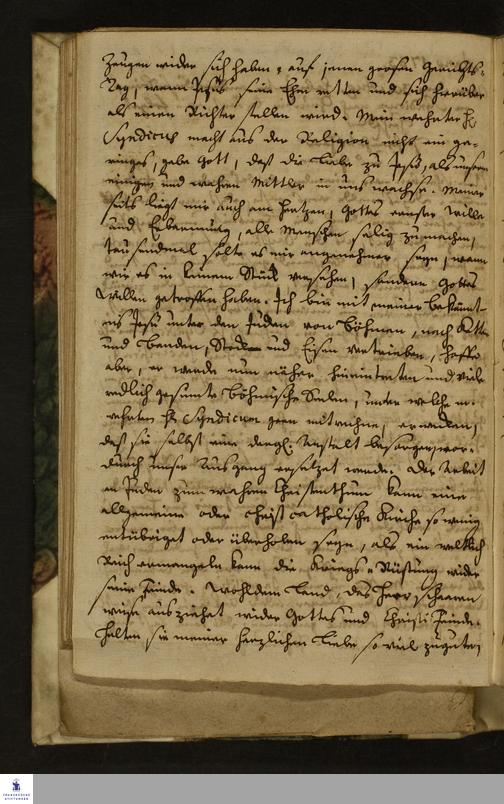 Zeugen wider sich haben, auf jenen grosen Gerichts-
Tag, wenn Jesus seine Ehre retten und sich herüber
als einen Richter stellen wird. Mein wehrter H.
Syndicus macht aus der Religion nicht ein ge-
ringes, gebe Gott, daß die Liebe zu Jesu, als unsern
einigen und wahren Mittler in uns wachse. Meiner
seits liegt mir auch am Hertzen, Gottes ernster Wille
und Erbarmung, alle Menschen selig zu machen,
tausendmal solte es mir angenehmer seyn, wann
wir es in keinem Stück versehen, sondern Gottes
Willen getroffen haben. Ich bin mit meiner bekäntt-
nis Jesu unter den Juden von Böhmen, nach Ketten
und Banden, Stock und Eisen vertrieben, hoffe
aber, er werde nun näher hineintreten und viele
redlich gesinnte Böhmische Seelen, unter welche m.
wehrten H. Syndicum gern mitrechne, erwecken,
daß sie selbst eine dergl. Anstalt besorgen, wo-
durch unser Ausgang ersetzet werde. Der Arbeit
an Juden zum wahren Christenthum kann eine
allgemeine oder christcatholische Kirche so wenig
entübriget oder überhoben seyn, als ein weltlich
Reich ermangeln kann die Kriegs-Rüstung wider
seine Feinde. Wohl dem Land, das Herr schaaren
weise ausziehet wider Gottes und Christi Feinde.
Halten sie meiner herzlichen Liebe so viel zugute,